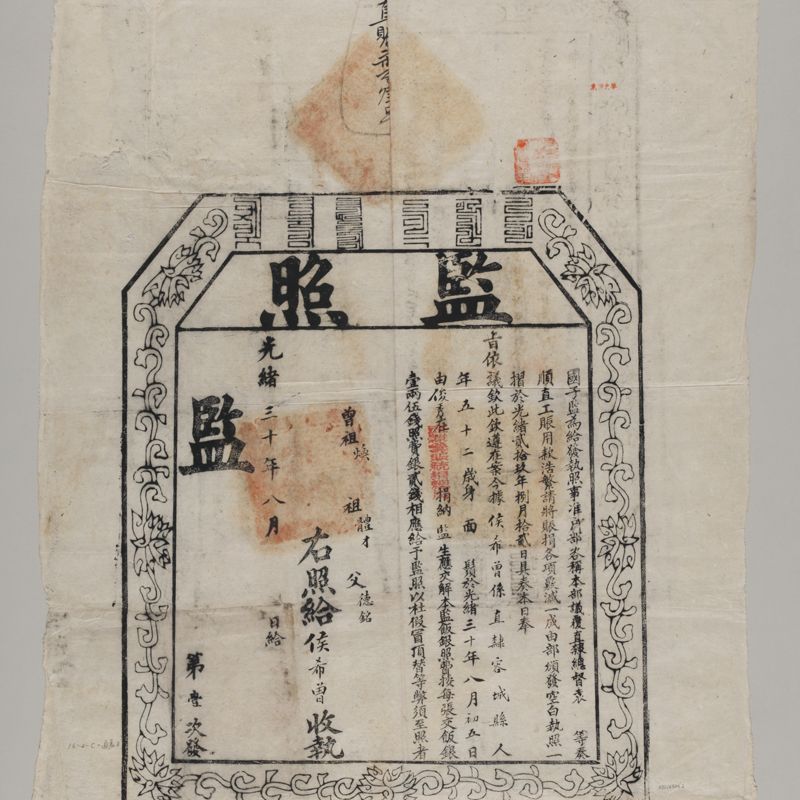 監照
國子監為給發執照事准戶部咨稱本部議覆直隸總督袁 等奏
順直工賑用款浩繁請將賑捐各項裁減一成由部頒發空白執照一
摺於光緒貳拾玖年捌月拾貳日具奏本日奉
上旨依議欽此欽遵在案今據 侯希曾係直隸容城縣人
年五十二歲身 面 鬚於光緒三十年八月初五日
由俊秀在 捐納監生應交解本監飯銀照費按每張交飯銀
壹兩伍錢照費銀貳錢相應給予監照以杜假冒頂替等弊須至照者
曾祖煥 祖體才 父德銘
右照給侯希曾收執
光緒三十年八月 日給
監
第 次發